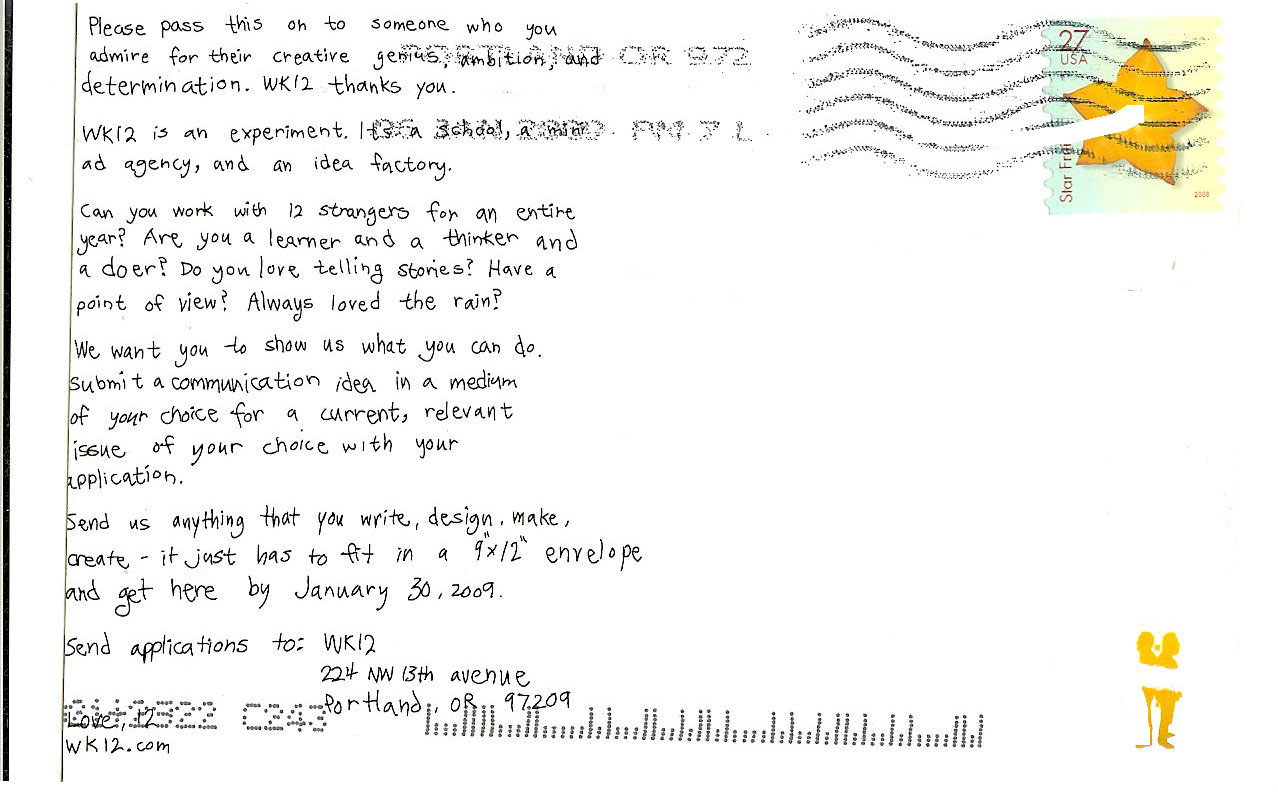 Please pass this on to someone who you
admire for their creative genius, ambition, and
determination. WK12 thanks you.
PORTLAND OR 972
WK12 is an experiment. It's a school, a mini
PM 7 L
ad agency, and an idea factory.
Can you work with 12 strangers for an entire
year? Are you a learner and a thinker and
a doer? Do you love telling stories? Have a
point of view? Always loved the rain?
We want you to show us what you can do.
Submit a communication idea in a medium
of your choice for a current, relevant
issue of your choice with your
application.
Send us anything that you write, design, make,
create - it just has to fit in a 9"x12" envelope
and get here by January 30, 2009.
Send applications to: WK12
224 NW 13th avenue
Portland, OR 97209
Love, 12
C243
WK12.com
27
USA
Star
2008